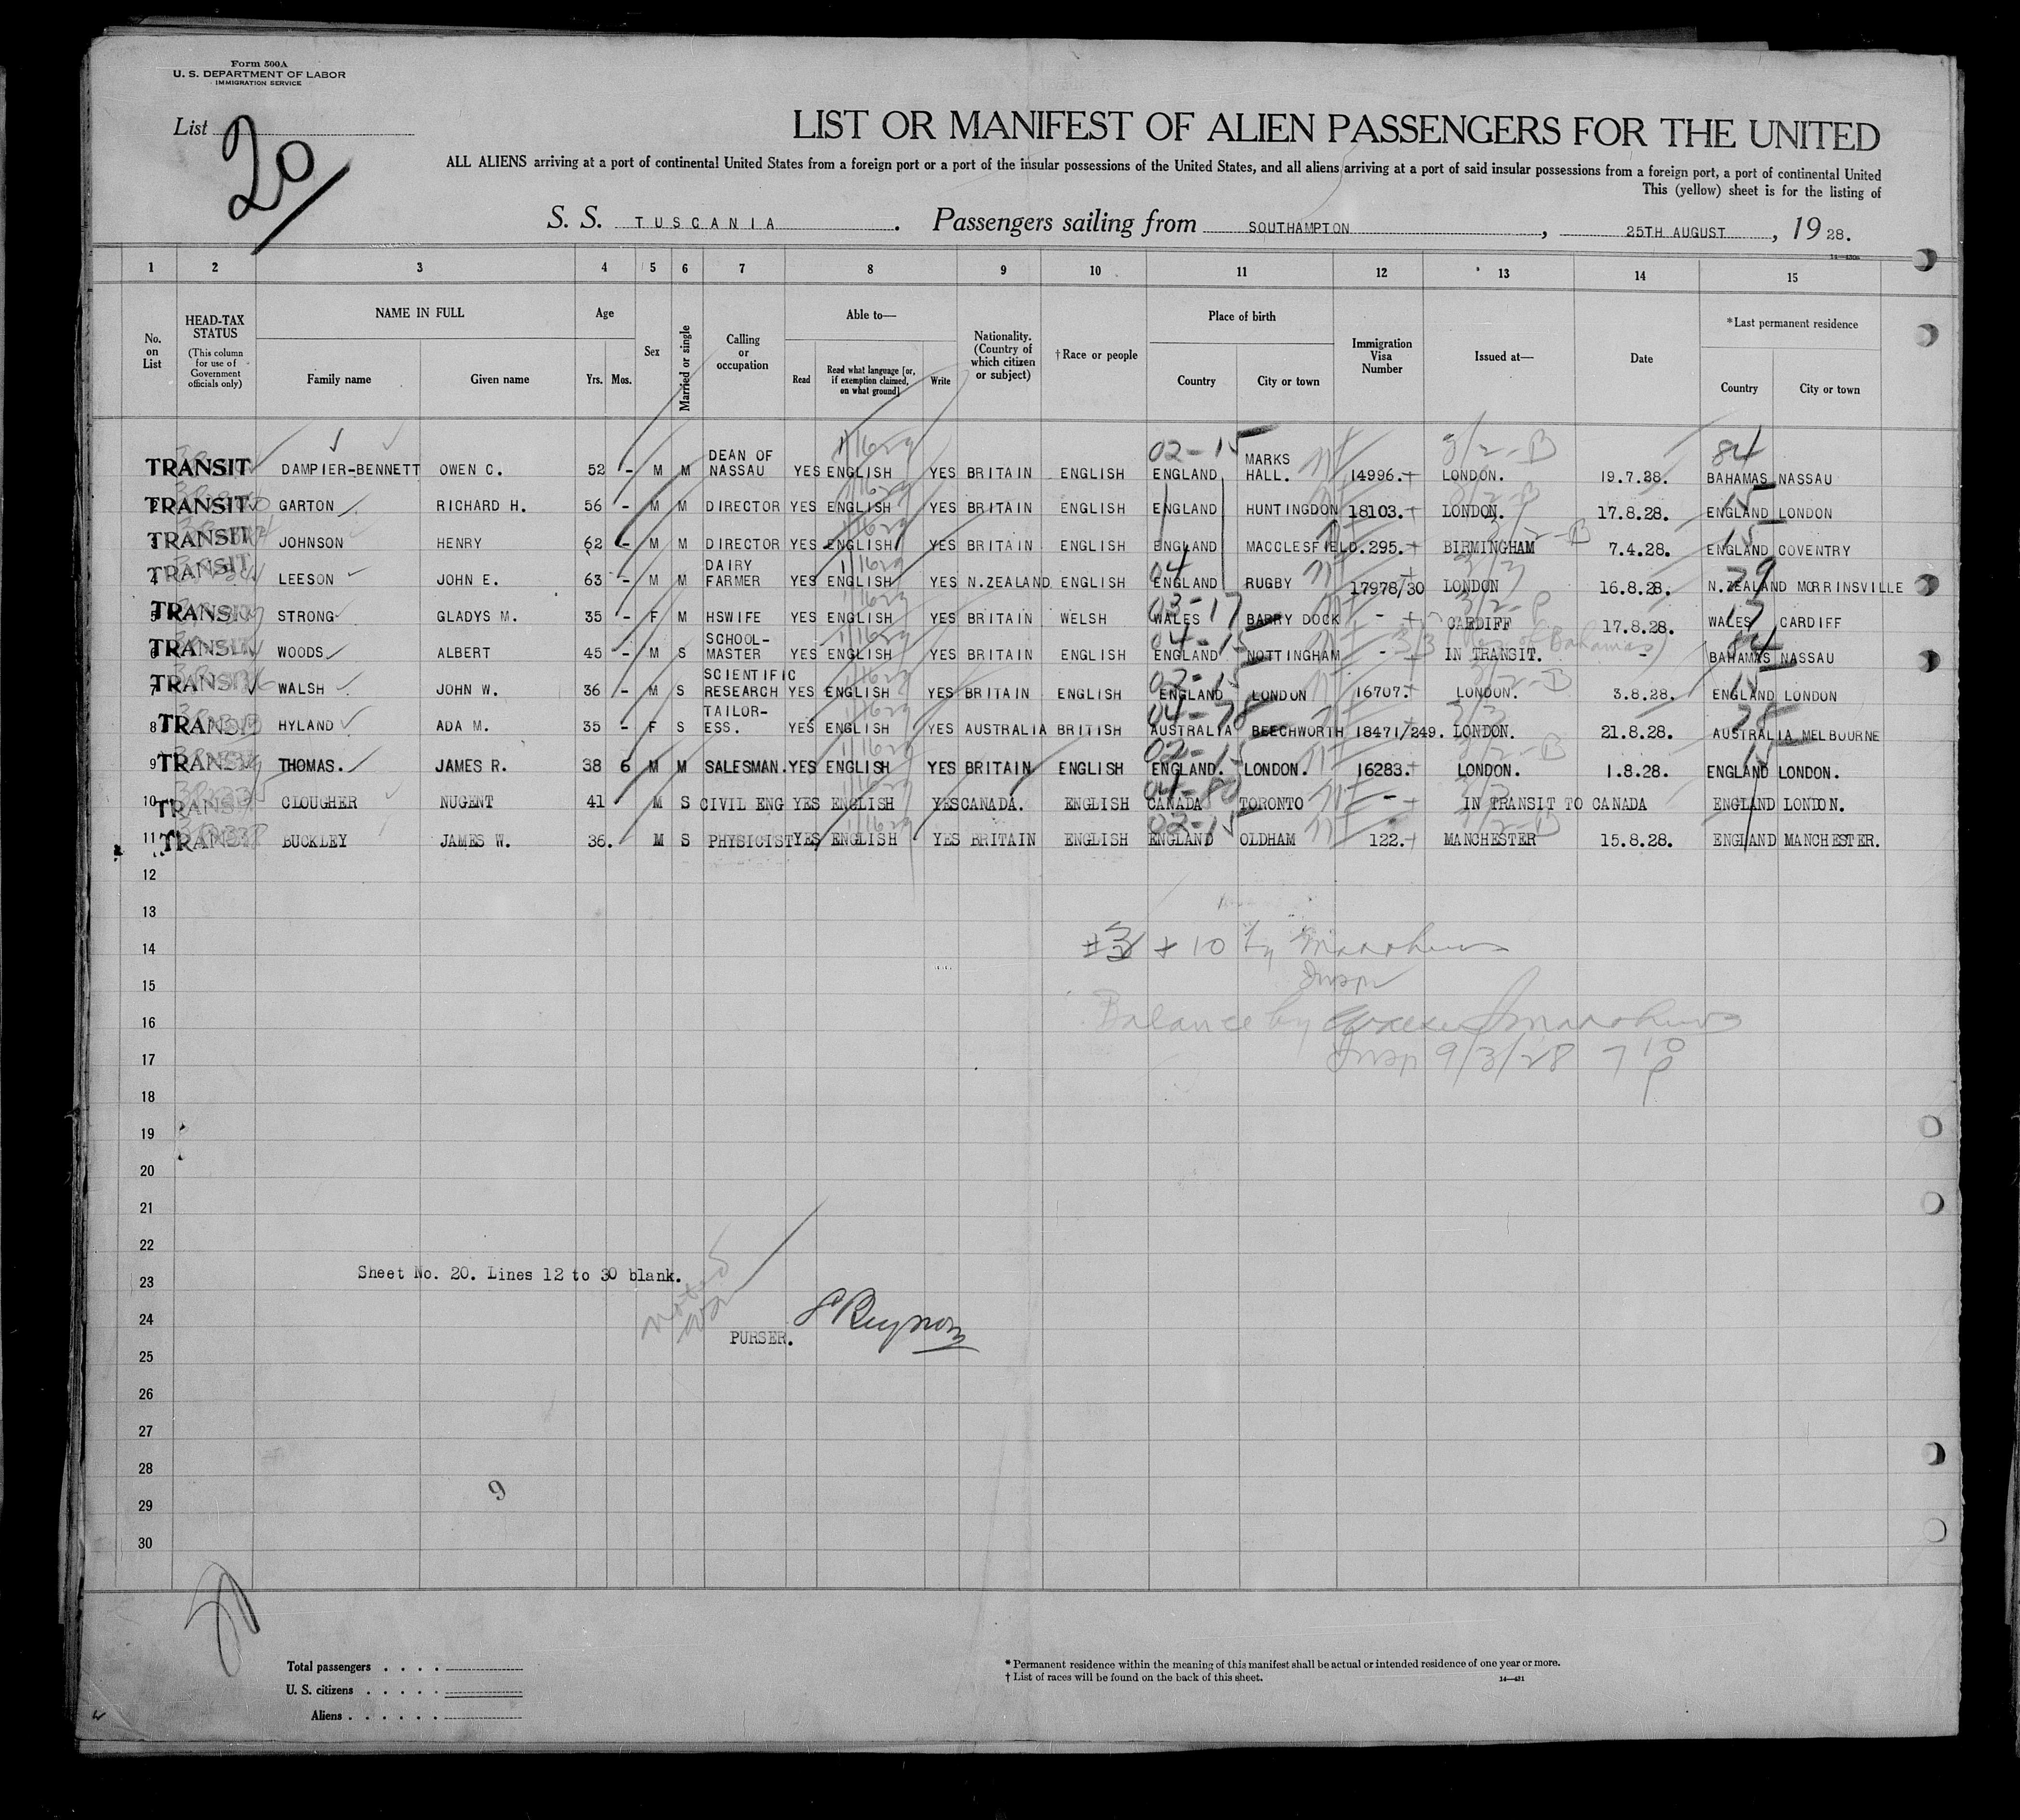 Form 500A
U. S. DEPARTMENT OF LABOR
IMMIGRATION SERVICE
List 20
LIST OR MANIFEST OF ALIEN PASSENGERS FOR THE UNITED
ALL ALIENS arriving at a port of continental United States from a foreign port or a port of the insular possessions of the United States, and all aliens arriving at a port of said insular possessions from a foreign port, a port of continental United
This (yellow) sheet is for the listing of
S. S. TUSCANIA. Passengers sailing from SOUTHAMPTON, 25TH AUGUST, 1928.
1 2 3 4 5 6 7 8 9 10 11 12 13 14 15
No. on List HEAD-TAX STATUS (This column for use of Government officials only) NAME IN FULL Family name Given name Age Yrs. Mos. Sex Married or single Calling or occupation Able to— Read Read what language [or, if exemption claimed, on what ground] Write Nationality. (Country of which citizen or subject) †Race or people Place of birth Country City or town Immigration Visa Number Issued at— Date *Last permanent residence Country City or town
TRANSIT DAMPIER-BENNETT OWEN C. 52 - M M DEAN OF NASSAU YES ENGLISH YES BRITAIN ENGLISH 02-15 ENGLAND MARKS HALL. 14996. LONDON. 19.7.28. 84 BAHAMAS NASSAU
2 TRANSIT GARTON RICHARD H. 56 - M M DIRECTOR YES ENGLISH YES BRITAIN ENGLISH ENGLAND HUNTINGDON 18103. LONDON. 17.8.28. 15 ENGLAND LONDON
3 TRANSIT JOHNSON HENRY 62 - M M DIRECTOR YES ENGLISH YES BRITAIN ENGLISH ENGLAND MACCLESFIELD. 295. BIRMINGHAM 7.4.28. 15 ENGLAND COVENTRY
4 TRANSIT LEESON JOHN E. 63 - M M DAIRY FARMER YES ENGLISH YES N.ZEALAND ENGLISH 04 ENGLAND RUGBY 17978/30 LONDON 16.8.28. 79 N.ZEALAND MORRINSVILLE
5 TRANSIT STRONG GLADYS M. 35 - F M HSWIFE YES ENGLISH YES BRITAIN WELSH 03-17 WALES BARRY DOCK - CARDIFF 17.8.28. 17 WALES CARDIFF
6 TRANSIT WOODS ALBERT 45 - M S SCHOOL-MASTER YES ENGLISH YES BRITAIN ENGLISH 04-15 ENGLAND NOTTINGHAM - IN TRANSIT. - 84 BAHAMAS NASSAU
7 TRANSIT WALSH JOHN W. 36 - M S SCIENTIFIC RESEARCH YES ENGLISH YES BRITAIN ENGLISH 02-15 ENGLAND LONDON 16707. LONDON. 3.8.28. 15 ENGLAND LONDON
8 TRANSIT HYLAND ADA M. 35 - F S TAILOR-ESS. YES ENGLISH YES AUSTRALIA BRITISH 04-78 AUSTRALIA BEECHWORTH 18471/249. LONDON. 21.8.28. 78 AUSTRALIA MELBOURNE
9 TRANSIT THOMAS. JAMES R. 38 6 M M SALESMAN. YES ENGLISH YES BRITAIN ENGLISH 02-15 ENGLAND. LONDON. 16283. LONDON. 1.8.28. 15 ENGLAND LONDON.
10 TRANSIT CLOUGHER NUGENT 41 M S CIVIL ENG YES ENGLISH YES CANADA. ENGLISH 04-80 CANADA TORONTO - IN TRANSIT TO CANADA ENGLAND LONDON.
11 TRANSIT BUCKLEY JAMES W. 36. M S PHYSICIST YES ENGLISH YES BRITAIN ENGLISH 02-15 ENGLAND OLDHAM 122. MANCHESTER 15.8.28. ENGLAND MANCHESTER.
12
13
14
15
Insp
16
Balance by
17
Insp 9/3/28 7 10 P
18
19
20
21
22
23 Sheet No. 20. Lines 12 to 30 blank.
noted
24
PURSER.
25
26
27
28
29 9
30
Total passengers . . . .
U. S. citizens . . . . .
Aliens . . . . . .
* Permanent residence within the meaning of this manifest shall be actual or intended residence of one year or more.
† List of races will be found on the back of this sheet.
14—431